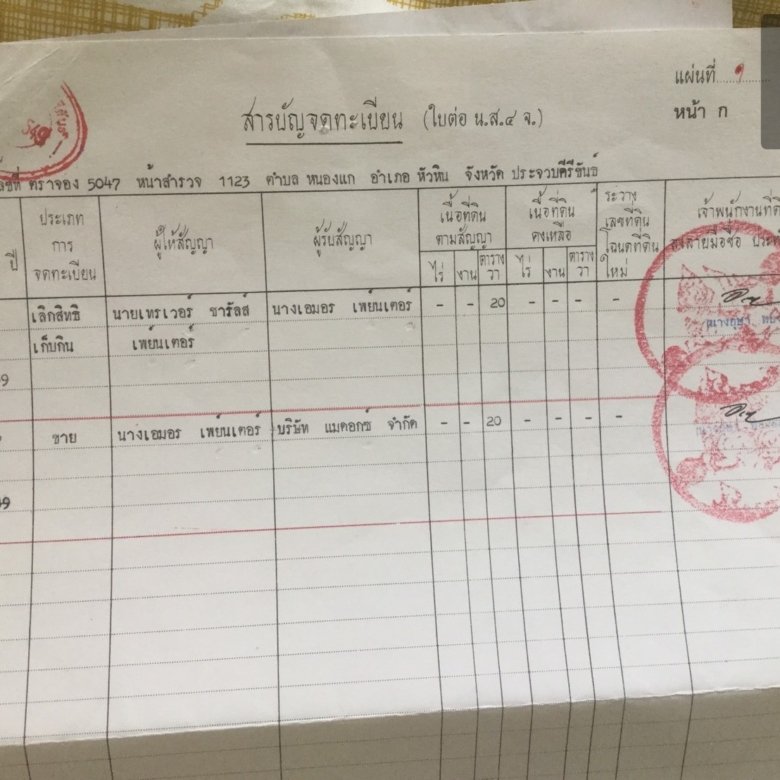 แผ่นที่ ๑
หน้า ก
สารบัญจดทะเบียน (ใบต่อ น.ส.๔ จ.)
ตราจอง 5047 หน้าสำรวจ 1123 ตำบล หนองแก อำเภอ หัวหิน จังหวัด ประจวบคีรีขันธ์
ปี
ประเภท
การ
จดทะเบียน
ผู้ให้สัญญา
ผู้รับสัญญา
เนื้อที่ดิน
ตามสัญญา
ไร่ งาน ตาราง
วา
เนื้อที่ดิน
คงเหลือ
ไร่ งาน ตาราง
วา
ระวาง
เลขที่ดิน
โฉนดที่ดิน
ใหม่
เจ้าพนักงานที่ดิ
ลงลายมือชื่อ
เลิกสิทธิ นายเทรเวอร์ ชารัลส์ นางเอมอร เพ้ยนเตอร์ - - 20 - - - -
เก็บกิน เพ้ยนเตอร์
9
ขาย นางเอมอร เพ้ยนเตอร์ บริษัท แมดอกซ์ จำกัด - - 20 - - - -